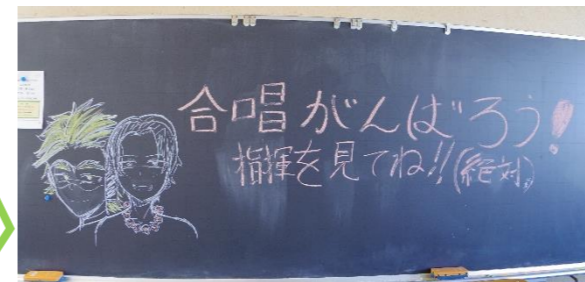 合唱がんばろう!
指揮を見てね!!(絶対)